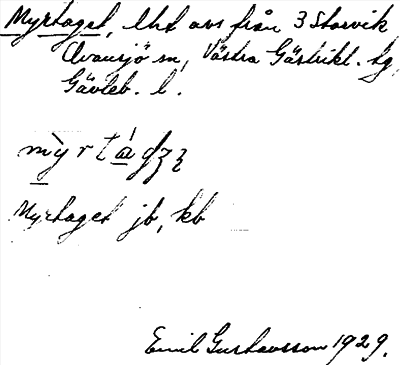 Myrtaget, lht avs från 3 Storvik
Ovansjö sn, Västra Gästrikl. tg,
Gävleb. l.
Myrtaget jb, kb
Emil Gustavsson 1929.